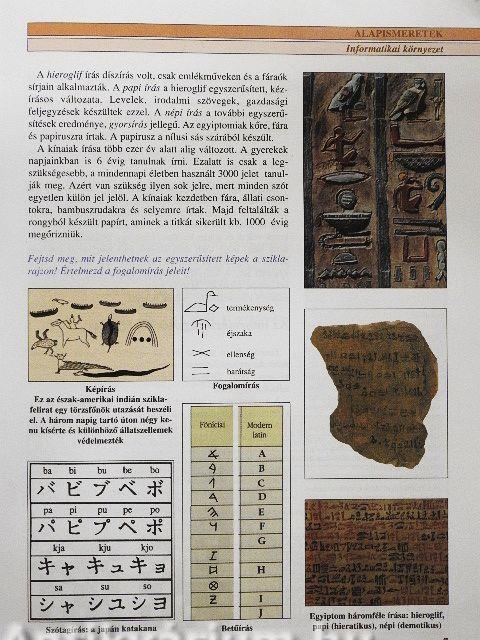 ALAPISMERETEK
Informatikai környezet
A hieroglif írás díszírás volt, csak emlékműveken és a fáraók
sírjain alkalmazták. A papi írás a hieroglif egyszerűsített, kéz-
írásos változata. Levelek, irodalmi szövegek, gazdasági
feljegyzések készültek ezzel. A népi írás a további egyszerű-
sítések eredménye, gyorsírás jellegű. Az egyiptomiak kőre, fára
és papiruszra írtak. A papirusz a nílusi sás szárából készült.
A kínaiak írása több ezer év alatt alig változott. A gyerekek
napjainkban is 6 évig tanulnak írni. Ezalatt is csak a leg-
szükségesebb, a mindennapi életben használt 3000 jelet tanul-
ják meg. Azért van szükség ilyen sok jelre, mert minden szót
egyetlen külön jel jelöl. A kínaiak kezdetben fára, állati cson-
tokra, bambuszrudakra és selyemre írtak. Majd feltalálták a
rongyból készült papírt, aminek a titkát sikerült kb. 1000 évig
megőrizniük.
Fejtsd meg, mit jelenthetnek az egyszerűsített képek a szikla-
rajzon! Értelmezd a fogalomírás jeleit!
termékenység
éjszaka
ellenség
barátság
Képírás
Fogalomírás
Ez az észak-amerikai indián szikla-
felirat egy törzsfőnök utazását beszéli
el. A három napig tartó úton négy ke-
nu kísérte és különböző állatszellemek
védelmezték
Föníciai Modern latin
A
B
C
D
E
F
G
H
I
J
ba bi bu be bo
バ ビ ブ ベ ボ
pa pi pu pe po
パ ピ プ ペ ポ
kja kju kjo
キャ キュ キョ
sa su so
シャ シュ ショ
Szótagírás: a japán katakana
Betűírás
Egyiptom háromféle írása: hieroglif,
papi (hieratikus), népi (demotikus)